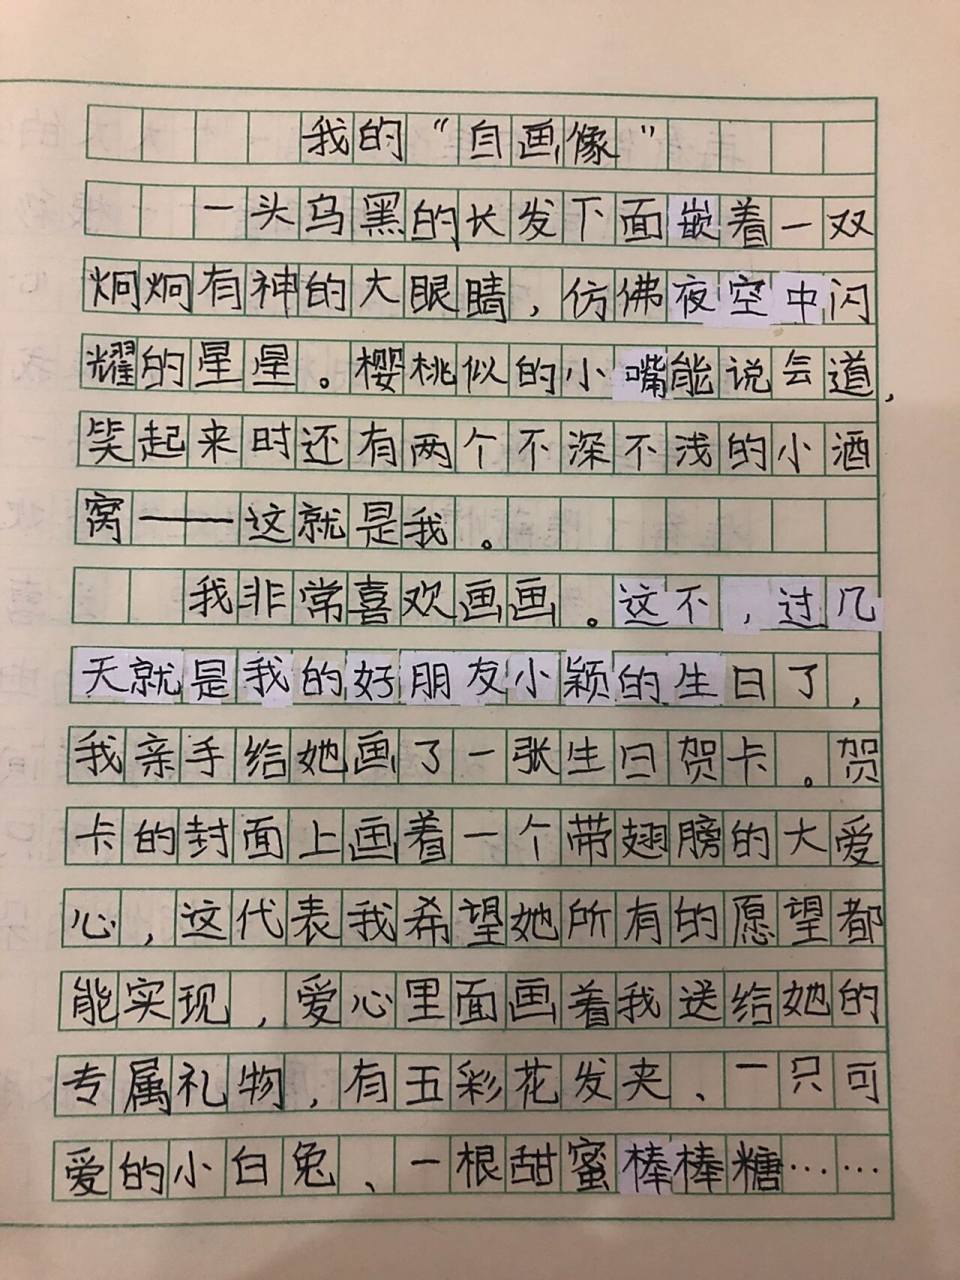 我的“自画像”
一头乌黑的长发下面嵌着一双
炯炯有神的大眼睛，仿佛夜空中闪
耀的星星。樱桃似的小嘴能说会道，
笑起来时还有两个不深不浅的小酒
窝——这就是我。
我非常喜欢画画。这不，过几
天就是我的好朋友小颖的生日了，
我亲手给她画了一张生日贺卡。贺
卡的封面上画着一个带翅膀的大爱
心，这代表我希望她所有的愿望都
能实现，爱心里面画着我送给她的
专属礼物，有五彩花发夹、一只可
爱的小白兔、一根甜蜜棒棒糖……